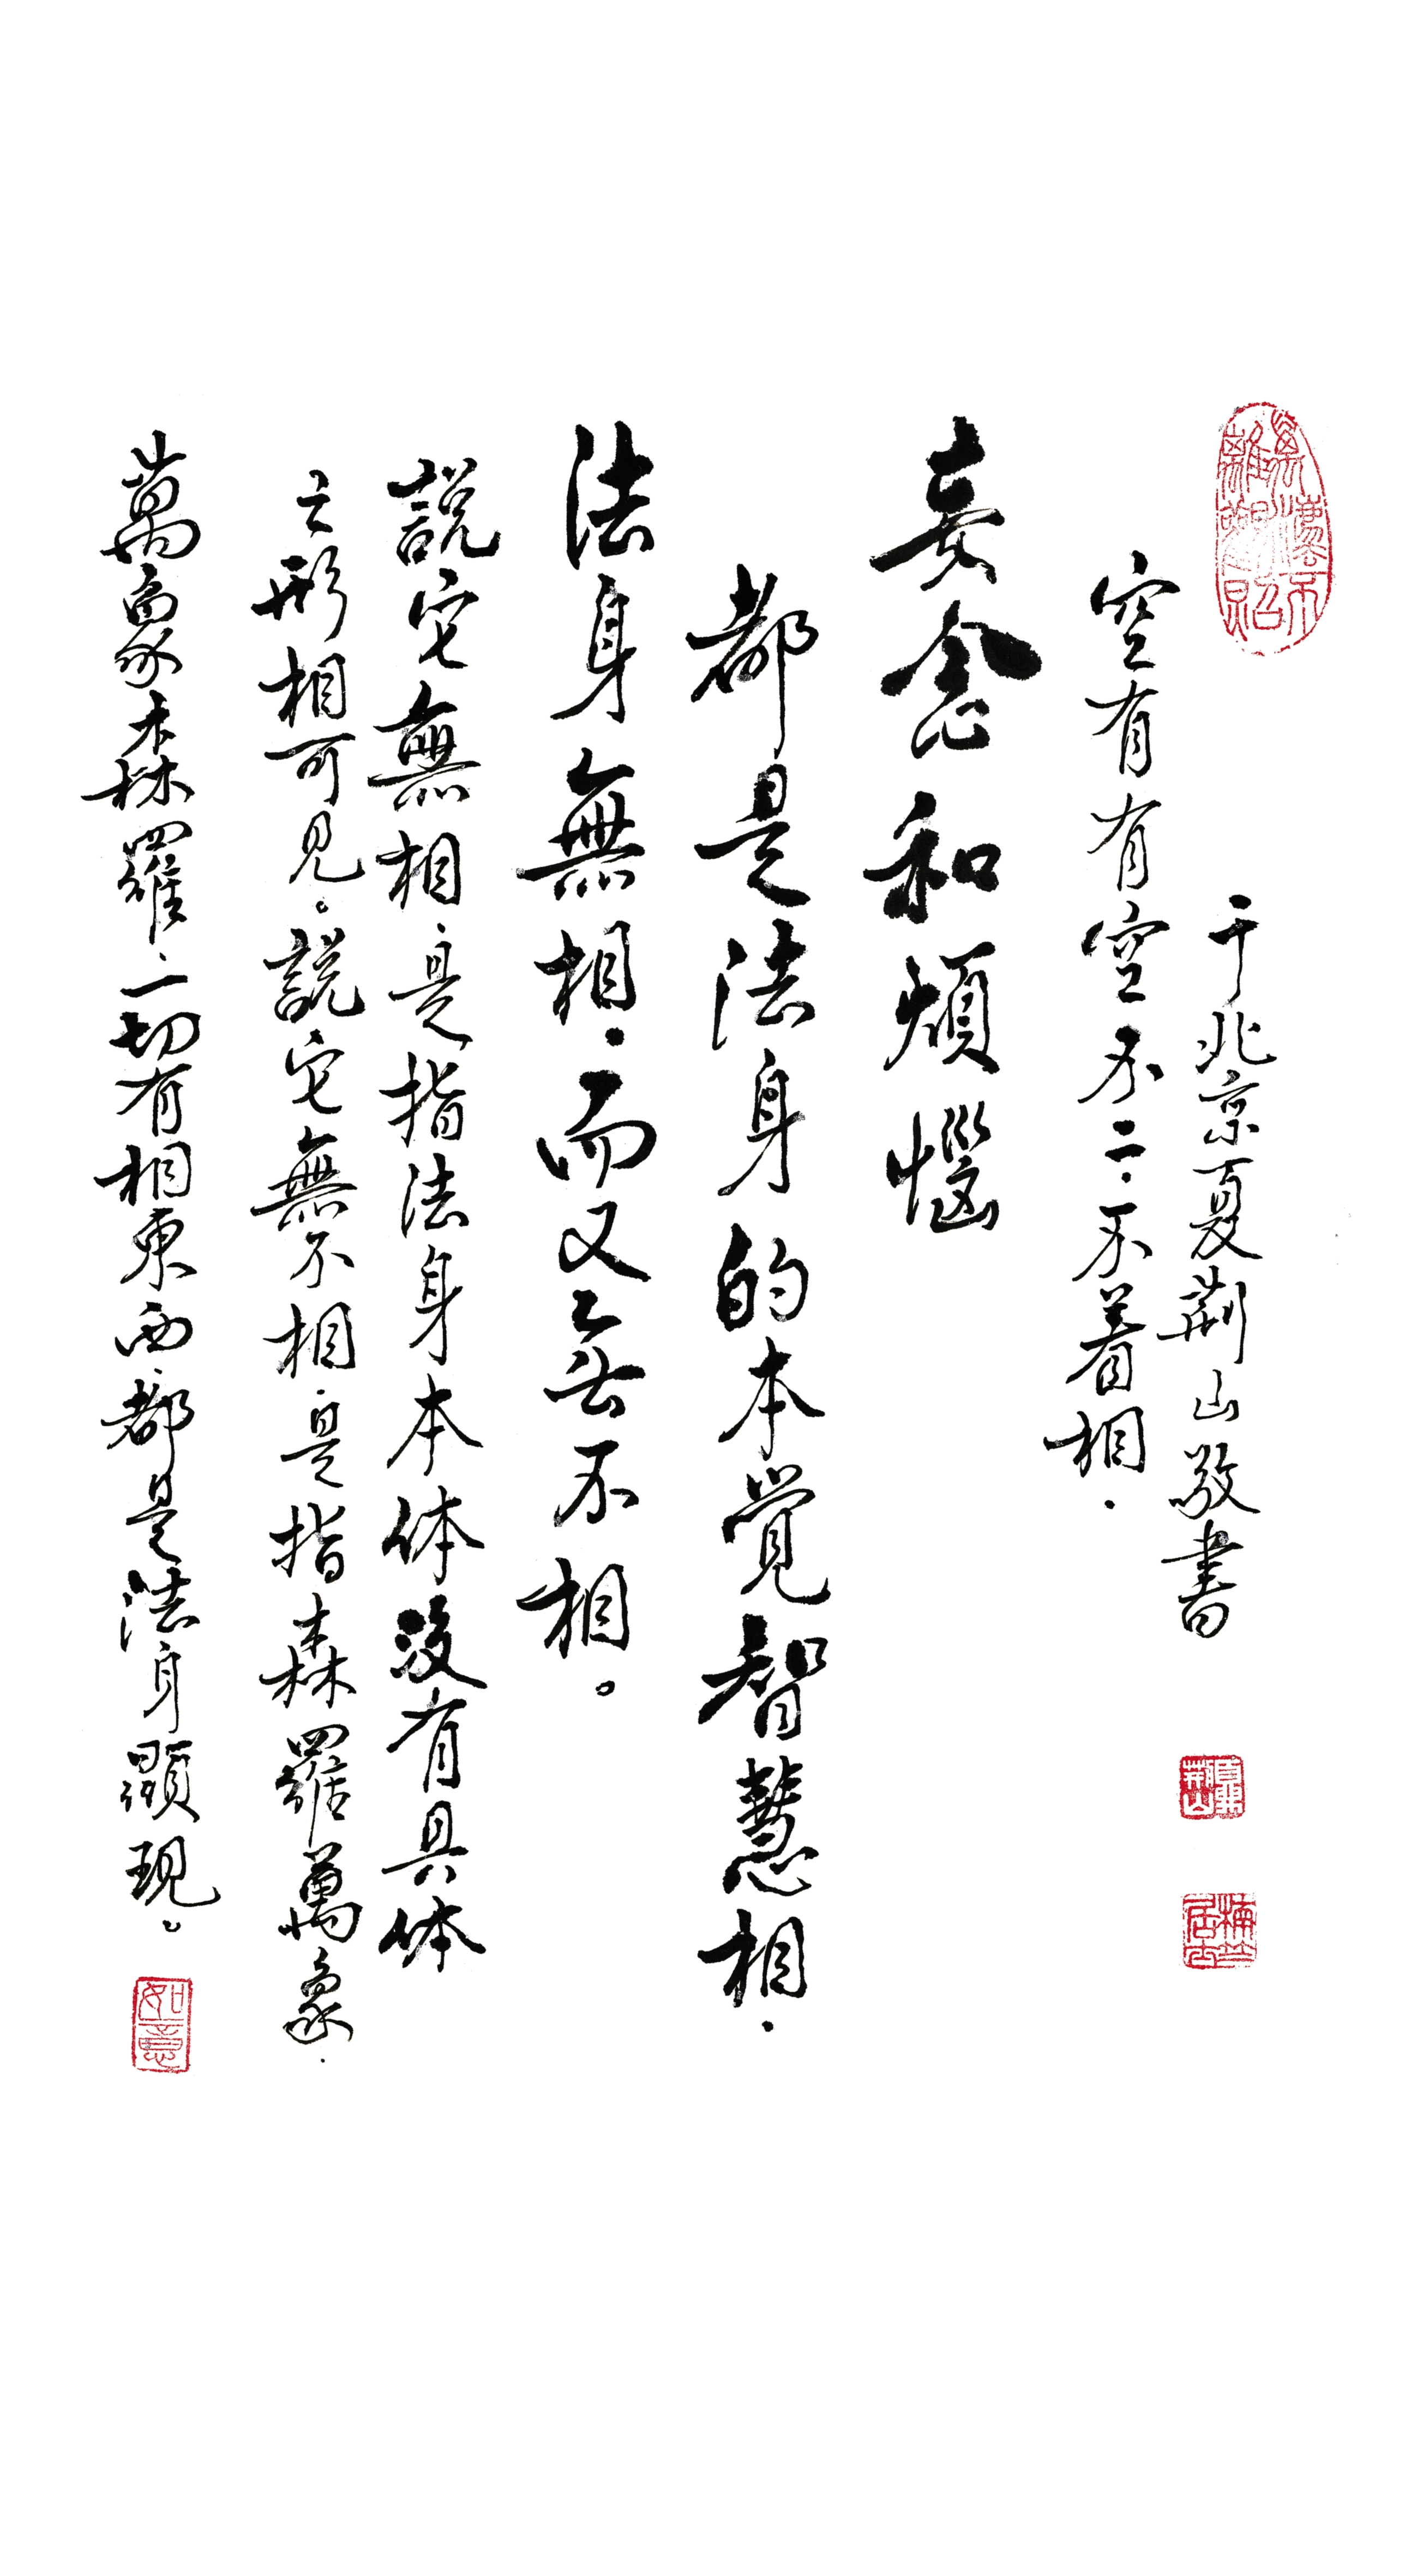 于北京夏荆山敬書
空有有空不二·不着相·
妄念和煩惱
都是法身的本覺智慧相·
法身無相·而又无不相。
說它無相·是指法身本体没有具体
之形相可見。說它無不相·是指森羅萬象·
萬象森羅·一切有相東西·都是法身顯現。
如意